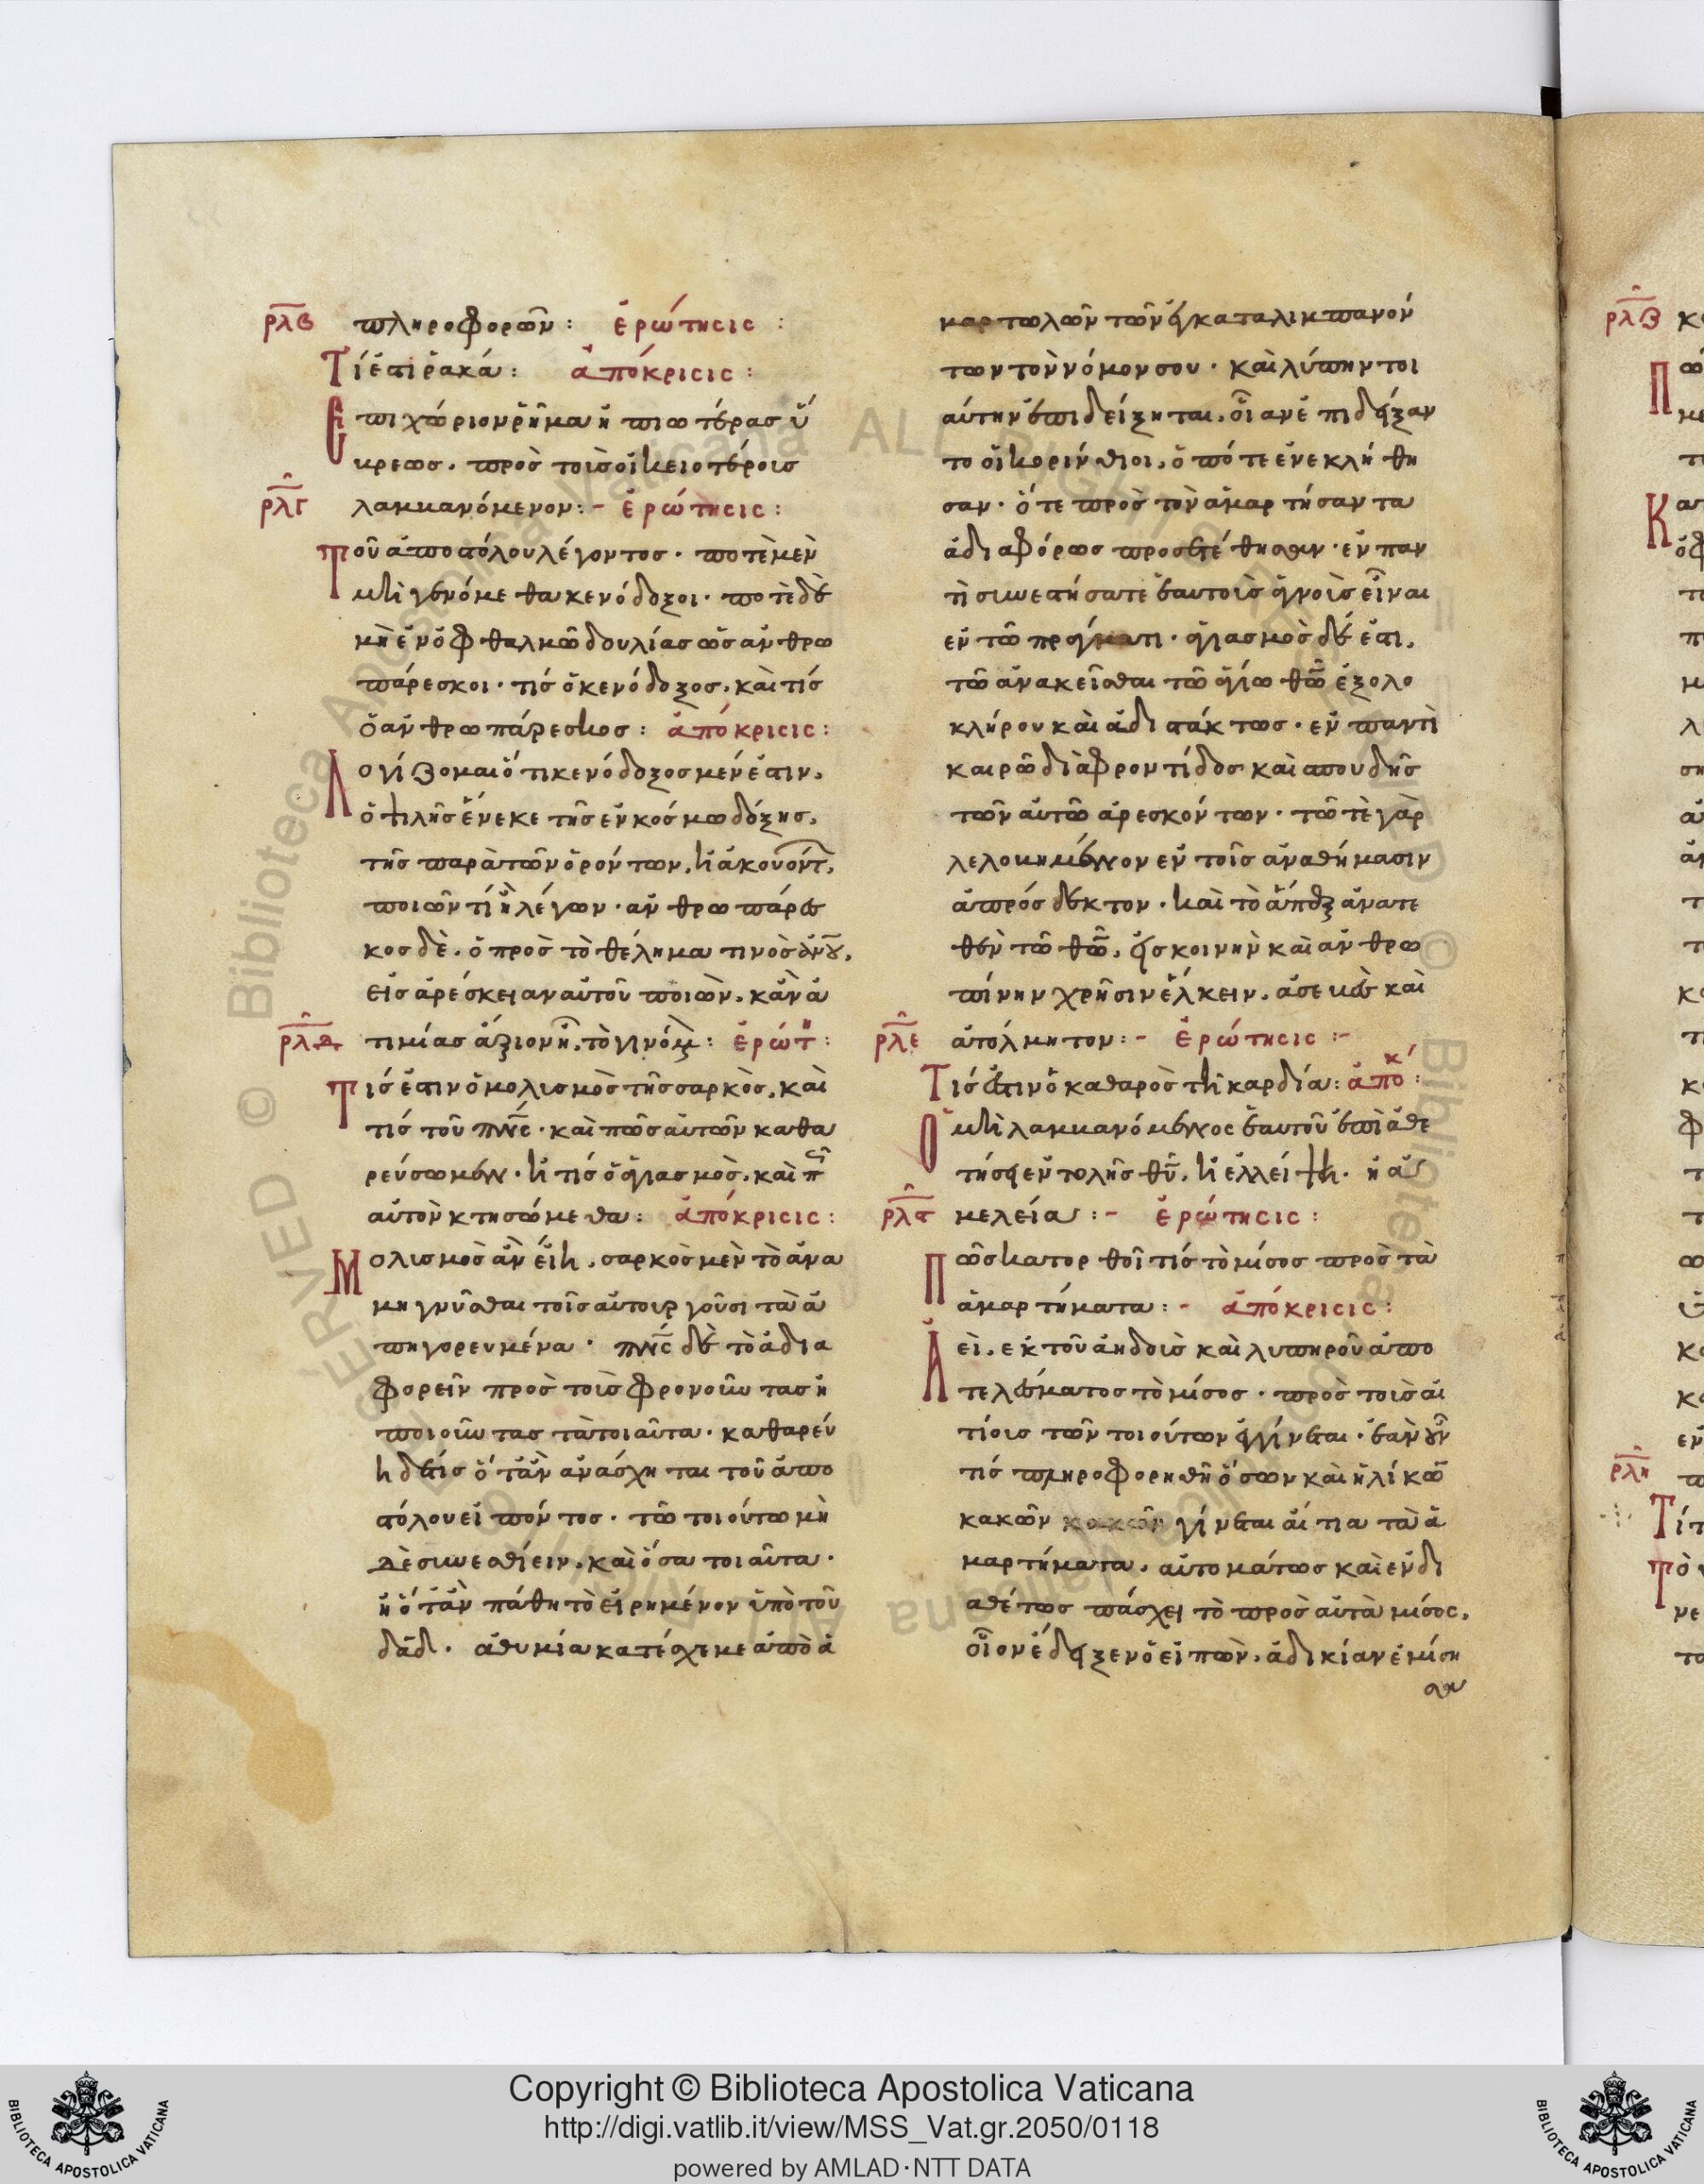 ρλβ πληροφορῶν : ἐρώτησις :
Τί ἐστι ῥακά : ἀπόκρισις :
Ἐπιχώριον ῥῆμα ἠπιωτέρας ὕ
βρεως. πρὸς τοὺς οἰκειοτέροις
ρλγ λαμβανόμενον :- ἐρώτησις :
Τοῦ ἀποστόλου λέγοντος· ποτὲ μὲν
μὴ γενόμεθα κενόδοξοι· ποτὲ δὲ
μὴ ἐν ὀφθαλμῶ δουλίας ὡς ἀνθρω
πάρεσκοι· τίς ὁ κενόδοξος, καὶ τίς
ὁ ἀνθρωπάρεσκος : ἀπόκρισις :
Λογίζομαι ὅτι κενόδοξος μέν ἐστιν,
ὁ ψιλῆς ἕνεκε τῆς ἐν κόσμω δόξης,
τῆς παρὰ τῶν ὁρόντων, ἢ ἀκουόντ,
ποιῶν τί ἢ λέγων· ἀνθρωπάρε
σκος δὲ, ὁ πρὸς τὸ θέλημα τινὸς ἀνου,
εἰς ἀρέσκειαν αὐτοῦ ποιῶν, κἂν ἀ
ρλδ τιμίας ἄξιον ἦ, τὸ γινόμ : ἐρώτη :
Τίς ἐστιν ὁ μολισμὸς τῆς σαρκὸς, καὶ
τίς τοῦ πνς· καὶ πῶς αὐτῶν καθα
ρεύσωμεν· ἢ τίς ὁ ἁγιασμὸς, καὶ πῶς
αὐτὸν κτησώμεθα : ἀπόκρισις :
Μολισμὸς ἂν εἴη, σαρκὸς μὲν τὸ ἀνα
μηγνῦσθαι τοῖς αὐτουργοῦσι τὰ ἀ
πηγορευμένα· πνς δὲ τὸ ἀδια
φορεῖν πρὸς τοὺς φρονοῦντας ἢ
ποιοῦντας τὰ τοιαῦτα· καθαρεύ
η δέ τις ὅταν ἀνάσχηται τοῦ ἀπο
στόλου εἰπόντος· τῶ τοιούτω μὴ
δὲ συνεσθίειν, καὶ ὅσα τοιαῦτα·
ἢ ὅταν πάθη τὸ εἰρημένον ὑπὸ τοῦ
δαδ· ἀθυμία κατέσχε με ἀπὸ ἁ
μαρτωλῶν τῶν ἐγκαταλιμπανόν
των τὸν νόμον σου· καὶ λύπην τοι
αύτην ἐπιδείξηται, οἵαν ἐπιδείξαν
το οἱ κορίνθιοι, ὁπότε ἐνεκλήθη
σαν· ὅτε πρὸς τὸν ἁμαρτήσαντα
ἀδιαφόρως προσετέθησαν· ἐν παν
τὶ συνεστήσατε ἑαυτοὺς ἁγνοὺς εἶναι
ἐν τῶ πράγματι· ἁγιασμὸς δέ ἐστι,
τῶ ἀνακεῖσθαι τῶ ἁγίω θῶ ἐξολο
κλήρου καὶ ἀδιστάκτως· ἐν παντὶ
καιρῶ διὰ φροντίδος καὶ σπουδῆς
τῶν αὐτῶ ἀρεσκόντων· τῶ τὲ γὰρ
λελοβημένον ἐν τοῖς ἀναθήμασιν
ἀπρόσδεκτον· καὶ τὸ ἅπαξ ἀνατε
θὲν τῶ θῶ, εἰς κοινὴν καὶ ἀνθρω
πίνην χρῆσιν ἕλκειν, ἀσεβὲς καὶ
ρλε ἀτόλμητον :- ἐρώτησις :-
Τίς ἐστιν ὁ καθαρὸς τῆ καρδία : ἀποκ :
Ὁ μὴ λαμβανόμενος ἑαυτοῦ ἐπὶ ἀθε
τήσει ἐντολῆς θῦ, ἢ ἐλλείψη· ἢ ἀ
ρλς μελεία :- ἐρώτησις :
Πῶς κατορθοῖ τίς τὸ μίσος πρὸς τὰ
ἁμαρτήματα :- ἀπόκρισις :
Ἀεὶ, ἐκ τοῦ ἀηδοῦς καὶ λυπηροῦ ἀπο
τελέσματος τὸ μίσος· πρὸς τοὺς αἰ
τίους τῶν τοιούτων ἐγγίνεται· ἐὰν οὖν
τίς πληροφορηθῆ ὅσων καὶ ἡλίκων
κακῶν κακῶν γίνεται αἴτια τὰ ἁ
μαρτήματα, αὐτομάτως καὶ ἐνδι
αθέτως πάσχει τὸ πρὸς αὐτὰ μίσος,
οἷον ἔδειξεν ὁ εἰπῶν, ἀδικίαν ἐμίση
σα
Copyright © Biblioteca Apostolica Vaticana
http://digi.vatlib.it/view/MSS_Vat.gr.2050/0118
powered by AMLAD·NTT DATA
BIBLIOTECA APOSTOLICA VATICANA
BIBLIOTECA APOSTOLICA VATICANA